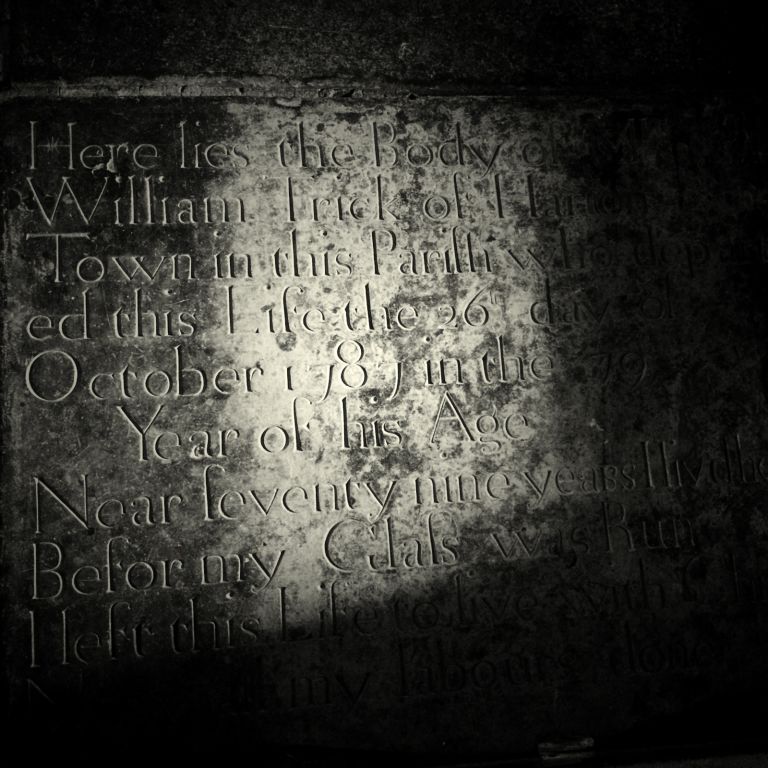 Here lies the Body of Mr
William Trick of Harton
Town in this Pariſh who depart
ed this Life the 26th day of
October 1787 in the 79
Year of his Age
Near ſeventy nine years I livd he
Befor my Glaſs was Run
I left this Life to live with Chri
all my labours done